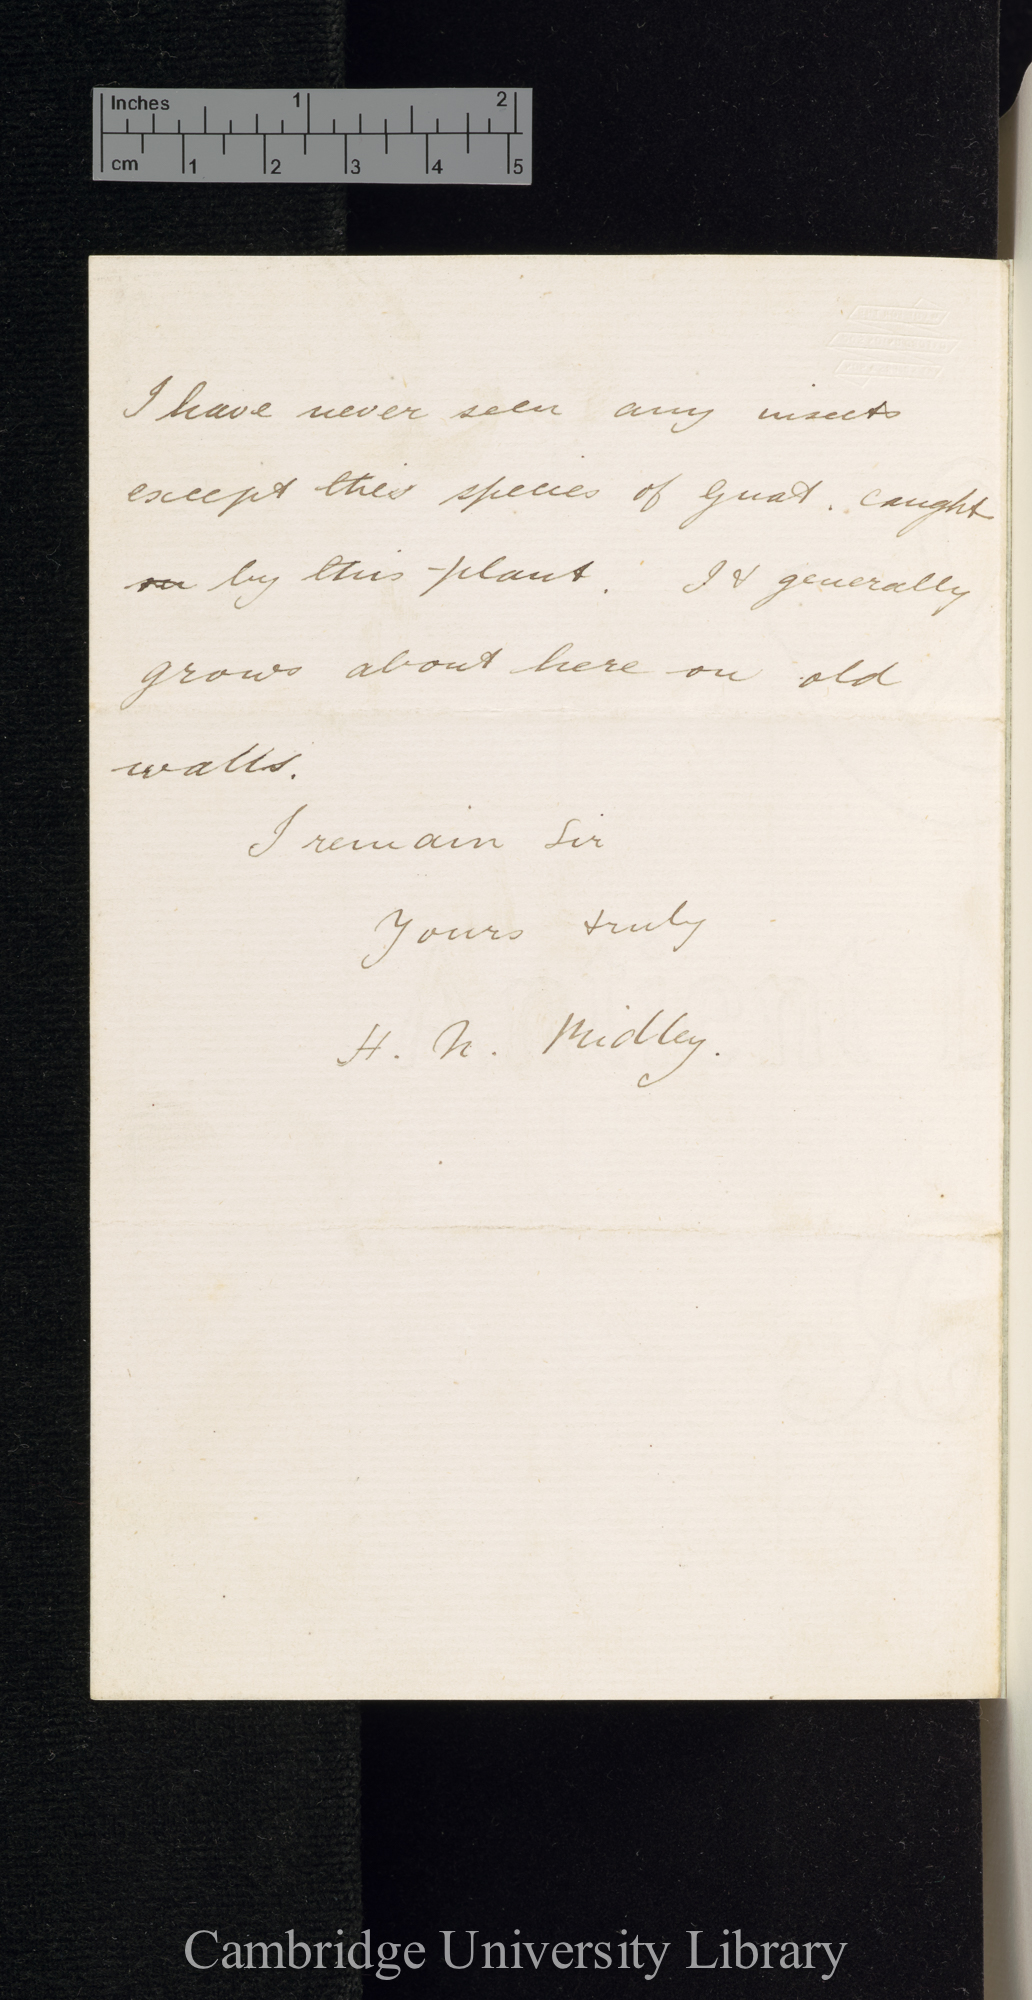 Inches 1 2
cm 1 2 3 4 5
I have never seen any insects
except this species of gnat. caught
on by this plant. It generally
grows about here on old
walls.
I remain Sir
Yours truly
H. N. Ridley.
Cambridge University Library